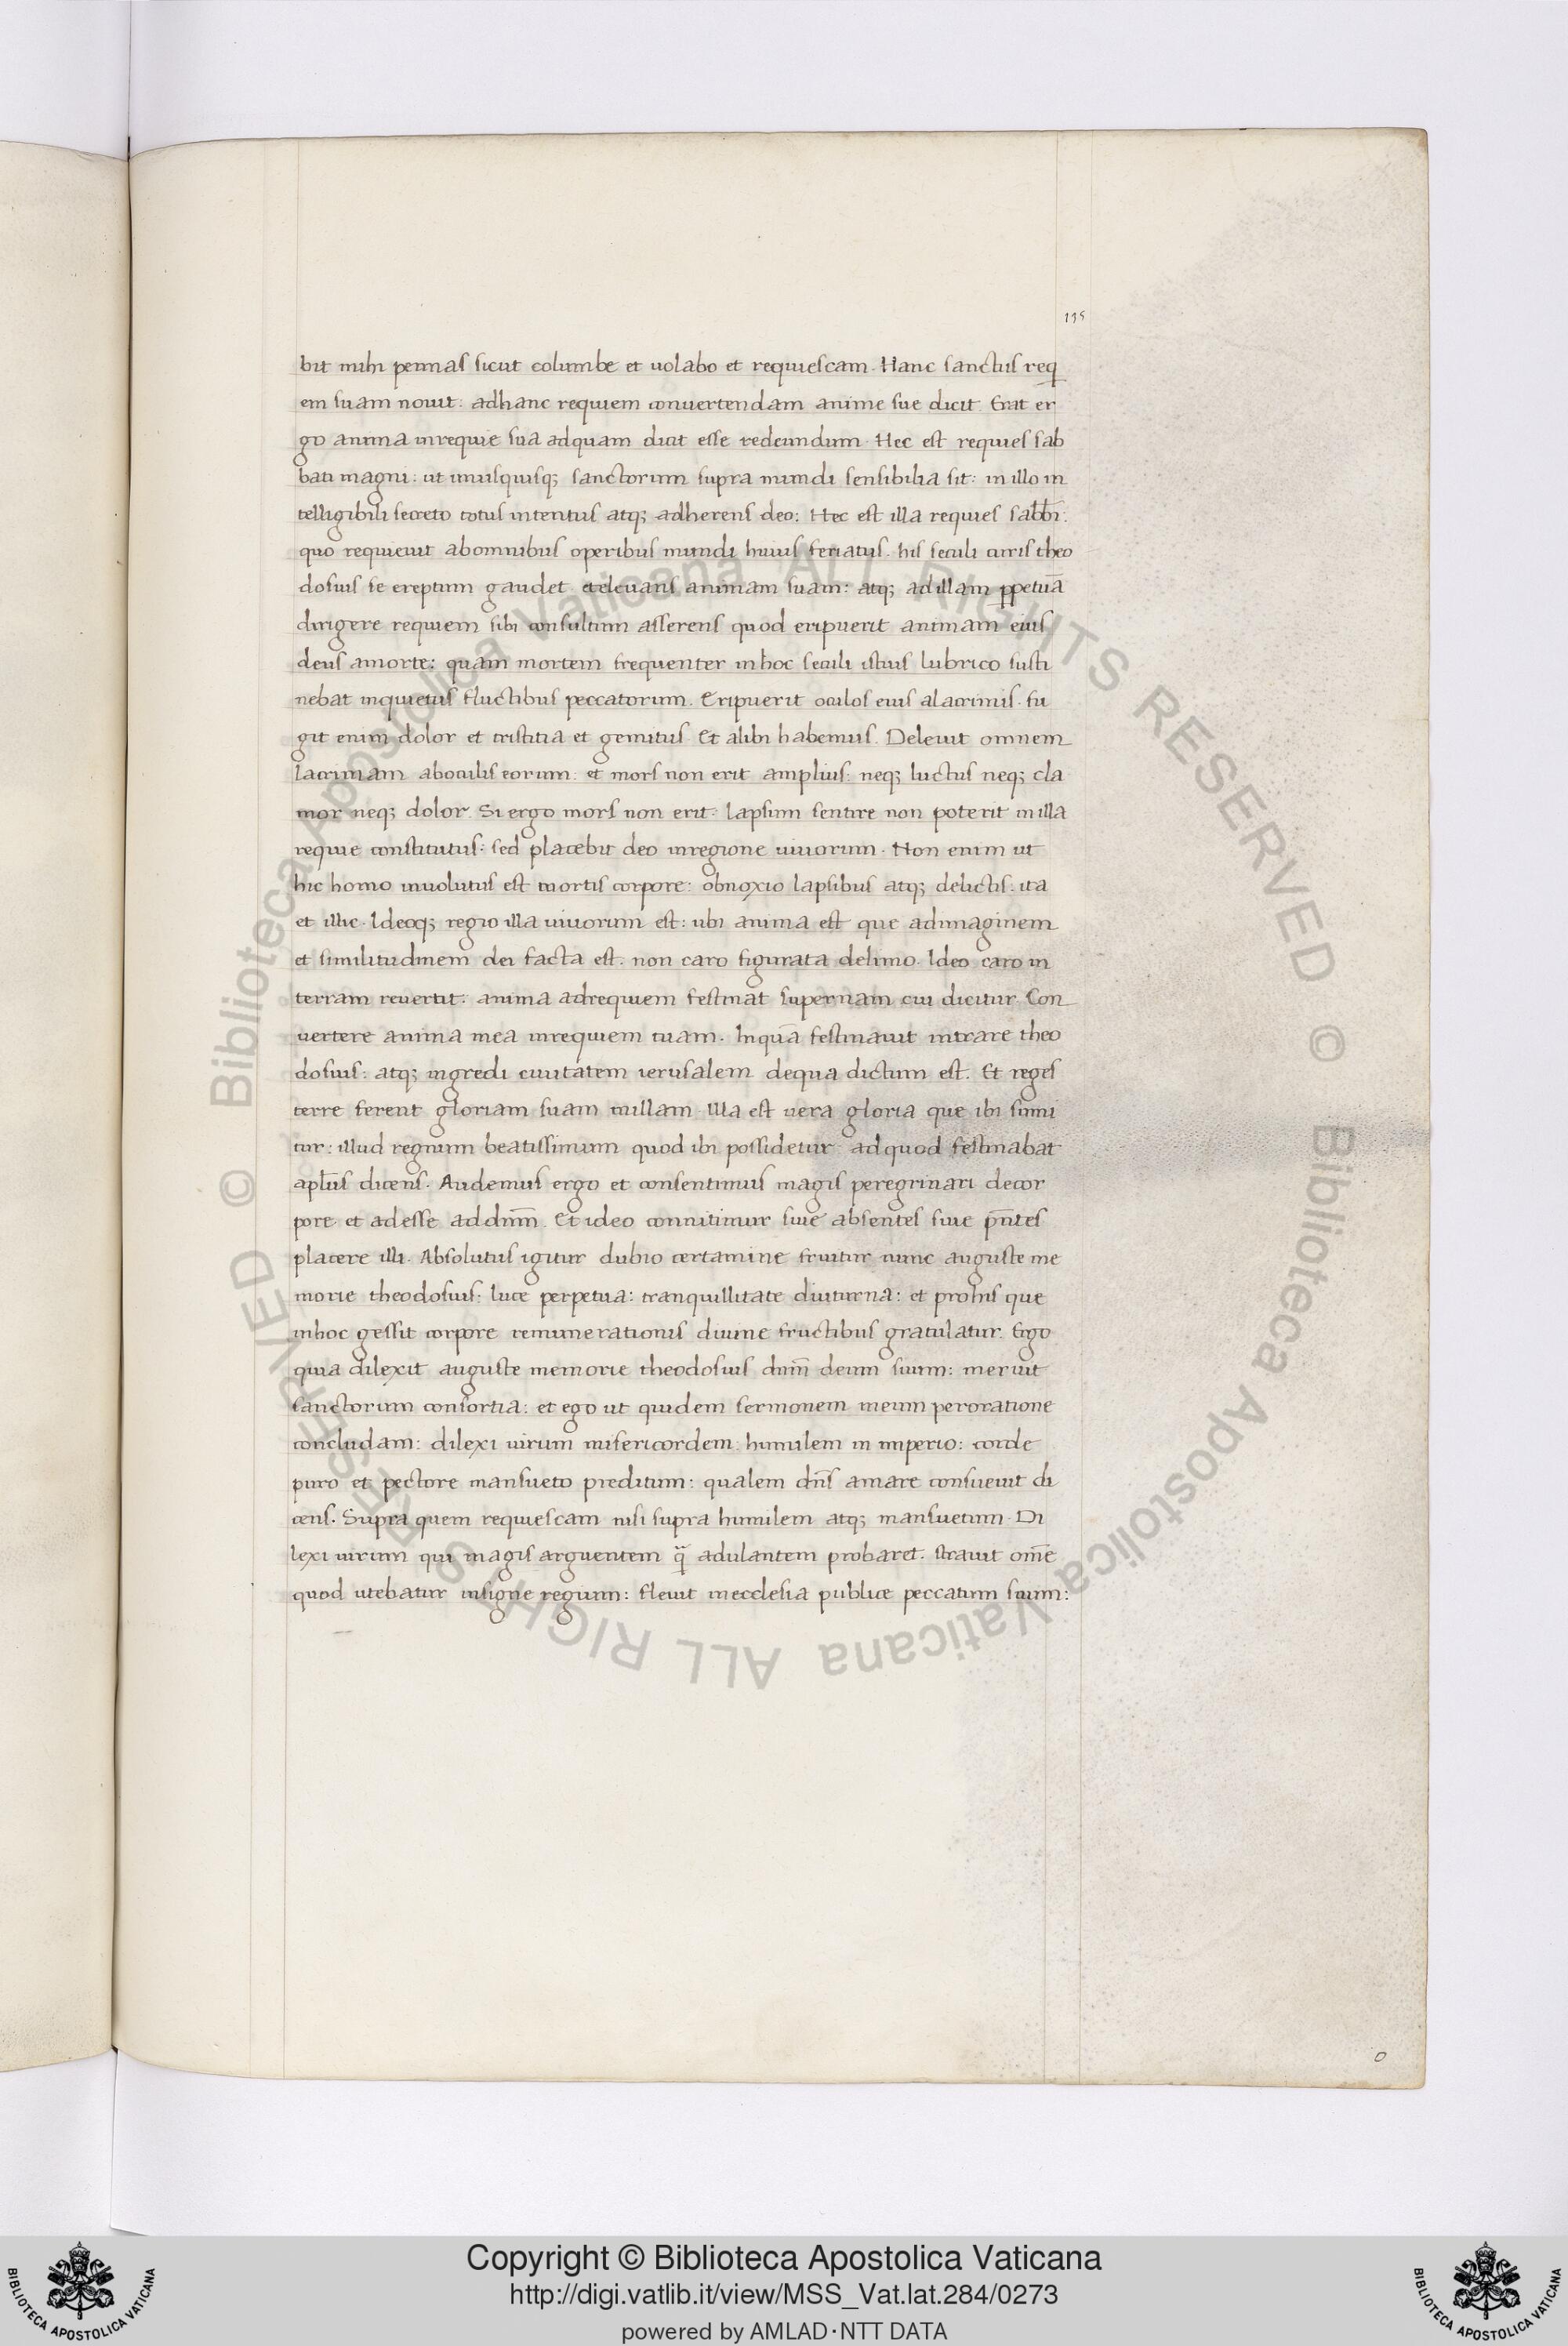 135
bit mihi pennas sicut columbe et uolabo et requiescam. Hanc sanctus req
em suam nouit: adhanc requiem conuertendam anime sue dicit. Erat er
go anima inrequie sua adquam dicit esse redeundum. Hec est requies sab
bati magni: ut unusquisq; sanctorum supra mundi sensibilia sit: in illo in
telligibili secreto totus intentus atq; adherens deo: Hec est illa requies sabb̄i:
quo requieuit abomnibus operibus mundi huius feriatus. his seculi curis theo
dosius se ereptum gaudet eteleuans animam suam: atq; adillam ꝑpetuā
dirigere requiem sibi consultum asserens quod eripuerit animam eius
deus amorte: quam mortem frequenter inhoc seculi istius lubrico susti
nebat inquietus fluctibus peccatorum. Eripuerit oculos eius alacrimis. fu
git enim dolor et tristitia et gemitus. Et alibi habemus. Deleuit omnem
lacrimam aboculis eorum: et mors non erit amplius: neq; luctus neq; cla
mor neq; dolor. Si ergo mors non erit: lapsum sentire non poterit in illa
requie constitutus: sed placebit deo inregione uiuorum. Non enim ut
hic homo inuolutus est mortis corpore: obnoxio lapsibus atq; delictis. ita
et illic. Ideoq; regio illa uiuorum est: ubi anima est que adimaginem
et similitudinem dei facta est. non caro figurata delimo. Ideo caro in
terram reuertit: anima adrequiem festinat supernam cui dicitur. Con
uertere anima mea inrequiem tuam. Inquā festinauit intrare theo
dosius: atq; ingredi ciuitatem ierusalem dequa dictum est. Et reges
terre ferent gloriam suam inillam. Illa est uera gloria que ibi sumi
tur: illud regnum beatissimum quod ibi possidetur: ad quod festinabat
apl̄us dicens. Audemus ergo et consentimus magis peregrinari decor
pore et adesse addn̄m. Et ideo connitimur siue absentes siue pn̄tes
placere illi. Absolutus igitur dubio certamine fruitur nunc auguste me
morie theodosius: luce perpetua: tranquillitate diuturna: et prohis que
inhoc gessit corpore remunerationis diuine fructibus gratulatur. Ergo
quia dilexit auguste memorie theodosius dn̄m deum suum: meruit
sanctorum consortia: et ego ut quidem sermonem meum peroratione
concludam: dilexi uirum misericordem: humilem in imperio: corde
puro et pectore mansueto preditum: qualem dn̄s amare consueuit di
cens. Supra quem requiescam nisi supra humilem atq; mansuetum. Di
lexi uirum qui magis arguentem q̄ adulantem probaret. strauit om̄e
quod utebatur insigne regium: fleuit inecclesia publice peccatum suum:
© Biblioteca Apostolica Vaticana ALL RIGHTS RESERVED © Biblioteca Apostolica Vaticana ALL RIGHTS RESERVED
Copyright © Biblioteca Apostolica Vaticana
http://digi.vatlib.it/view/MSS_Vat.lat.284/0273
powered by AMLAD·NTT DATA
BIBLIOTECA APOSTOLICA VATICANA
BIBLIOTECA APOSTOLICA VATICANA